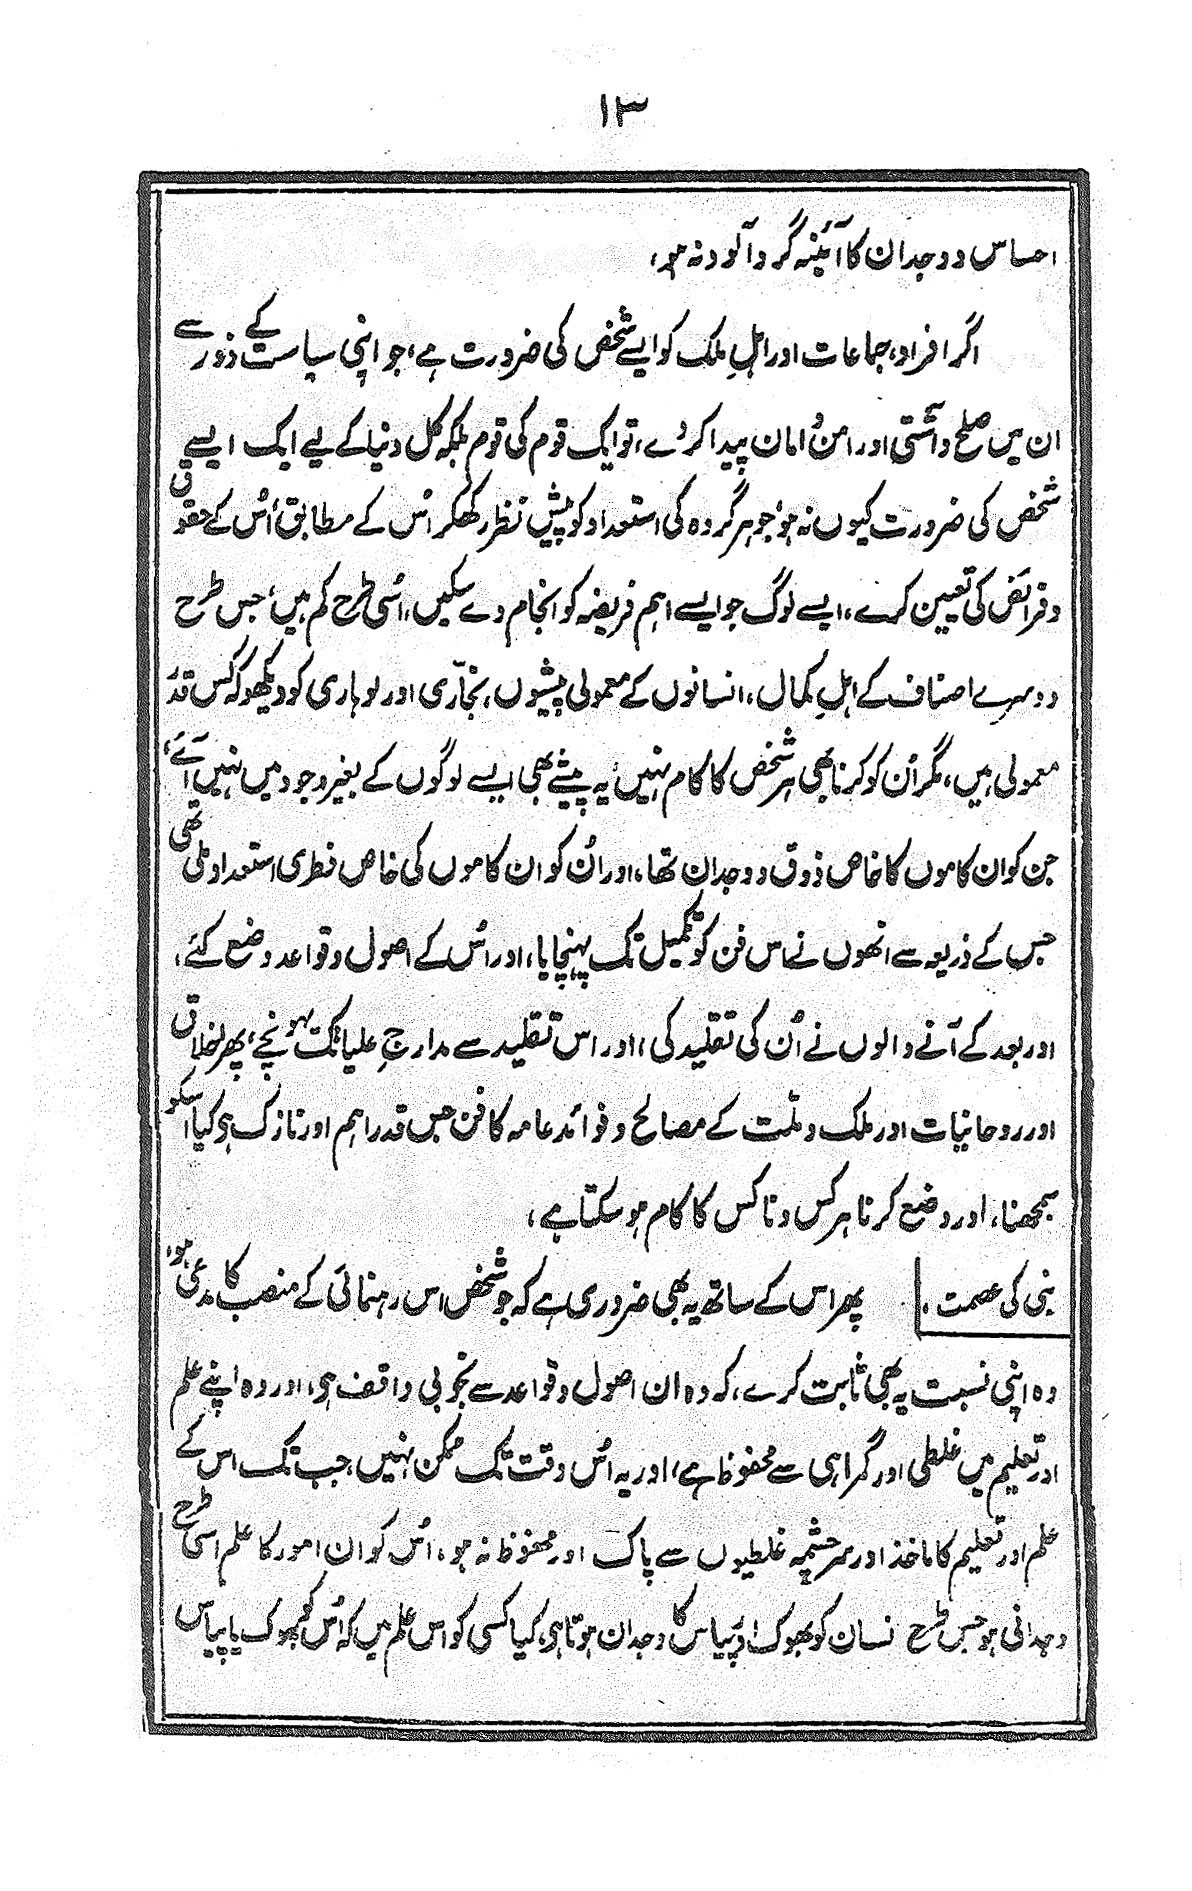 ۱۳
احساس و وجدان کا آئینہ گرد آلود نہ ہو،
اگر افراد، جماعات اور اہلِ ملک کو ایسے شخص کی ضرورت ہے، جو اپنی سیاست کے زور سے
ان میں صلح و آشتی اور امن و امان پیدا کر دے، تو ایک قوم کی قوم بلکہ کل دنیا کے لیے ایک ایسے
شخص کی ضرورت کیوں نہ ہو، جو ہر گروہ کی استعداد کو پیشِ نظر رکھکر اُس کے مطابق اُس کے حقوق
و فرائض کی تعیین کرے، ایسے لوگ جو ایسے اہم فریضہ کو انجام دے سکیں، اُسی طرح کم ہیں، جس طرح
دوسرے اصناف کے اہلِ کمال، انسانوں کے معمولی پیشوں، نجّاری اور لوہاری کو دیکھو کہ کس قدر
معمولی ہیں، مگر اُن کو کرنا بھی ہر شخص کا کام نہیں، یہ پیشے بھی ایسے لوگوں کے بغیر وجود میں نہیں آئے،
جن کو ان کاموں کا خاص ذوق و وجدان تھا، اور اُن کو ان کاموں کی خاص فطری استعداد ملی تھی
جس کے ذریعہ سے انھوں نے اس فن کو تکمیل تک پہنچایا، اور اُس کے اصول و قواعد وضع کئے،
اور بعد کے آنے والوں نے اُن کی تقلید کی، اور اس تقلید سے مدارجِ علیا تک پہونچے، پھر اخلاق
اور روحانیات اور ملک و ملّت کے مصالح و فوائد عامہ کا فن جس قدر اہم اور نازک ہی کیا اسکو
سمجھنا، اور وضع کرنا ہر کس و ناکس کا کام ہو سکتا ہے،
نبی کی عصمت، پھر اس کے ساتھ یہ بھی ضروری ہے کہ جو شخص اس رہنمائی کے منصب کا مدعی ہو،
وہ اپنی نسبت یہ بھی ثابت کرے، کہ وہ ان اصول و قواعد سے بخوبی واقف ہی، اور وہ اپنے علم
اور تعلیم میں غلطی اور گمراہی سے محفوظ ہے، اور یہ اُس وقت تک ممکن نہیں، جب تک اس کے
علم اور تعلیم کا ماخذ اور سرچشمہ غلطیوں سے پاک اور محفوظ نہ ہو، اُس کو ان امور کا علم اسی طرح
وجدانی ہو جس طرح انسان کو بھوک اور پیاس کا وجدان ہوتا ہی، کیا کسی کو اس علم میں کہ اُس کو بھوک یا پیاس